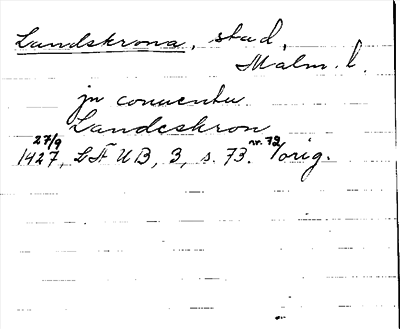 Landskrona, stad,
Malm. l.
jn conuentu
Landeskron
27/9 1427, LÅUB, 3, s. 73. nr. 72 orig.